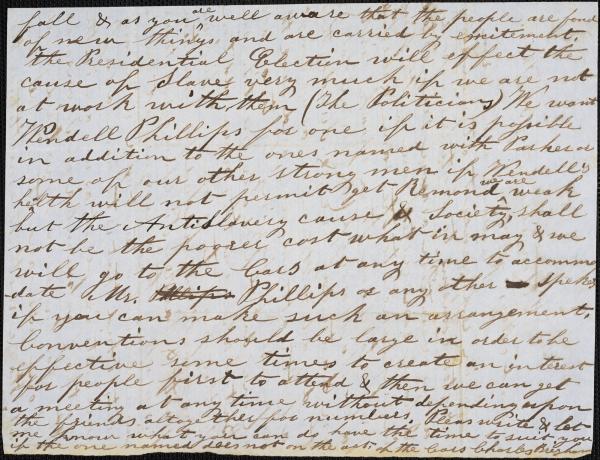 fall & as you are well aware that the people are fond
of new things and are carried by excitement.
The Presidential Election will effect the
cause of Slave very much if we are not
at work with them (The Politicians) We want
Wendell Phillips for one if it is possible
in addition to the ones named with Parker or
some of our other strong men if Wendell's
helth will not permit get Remond we are weak
but the Antislavery cause & Society, shall
not be the poorer cost what in may & we
will go to the Cars at any time to accommo
date Mr. Phillips Phillips or any other speker
if you can make such an arrangement,
Conventions should be large in order to be
effective some times to create an interest
for people first to attend & then we can get
a meeting at any time without depending upon
the friends altogether for numbers. Pleas write & let
me know what you can do have the time to suit you
if the one named does not on the act. of the Cars Charles